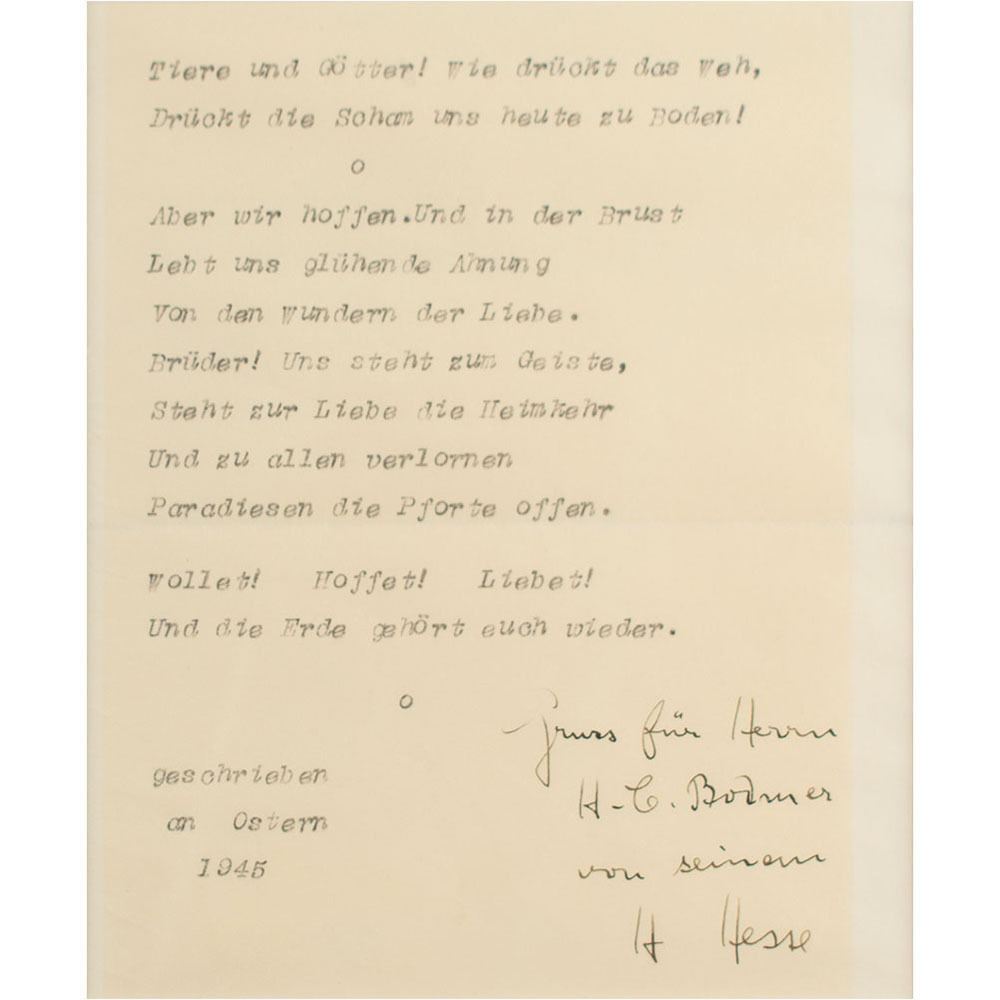 Tiere und Götter! Wie drückt das Weh,
Drückt die Scham uns heute zu Boden!
o
Aber wir hoffen.Und in der Brust
Lebt uns glühende Ahnung
Von den Wundern der Liebe.
Brüder! Uns steht zum Geiste,
Steht zur Liebe die Heimkehr
Und zu allen verlornen
Paradiesen die Pforte offen.
Wollet! Hoffet! Liebet!
Und die Erde gehört euch wieder.
o
geschrieben
an Ostern
1945
Gruss für Herrn
H-C. Bodmer
von seinem
H Hesse